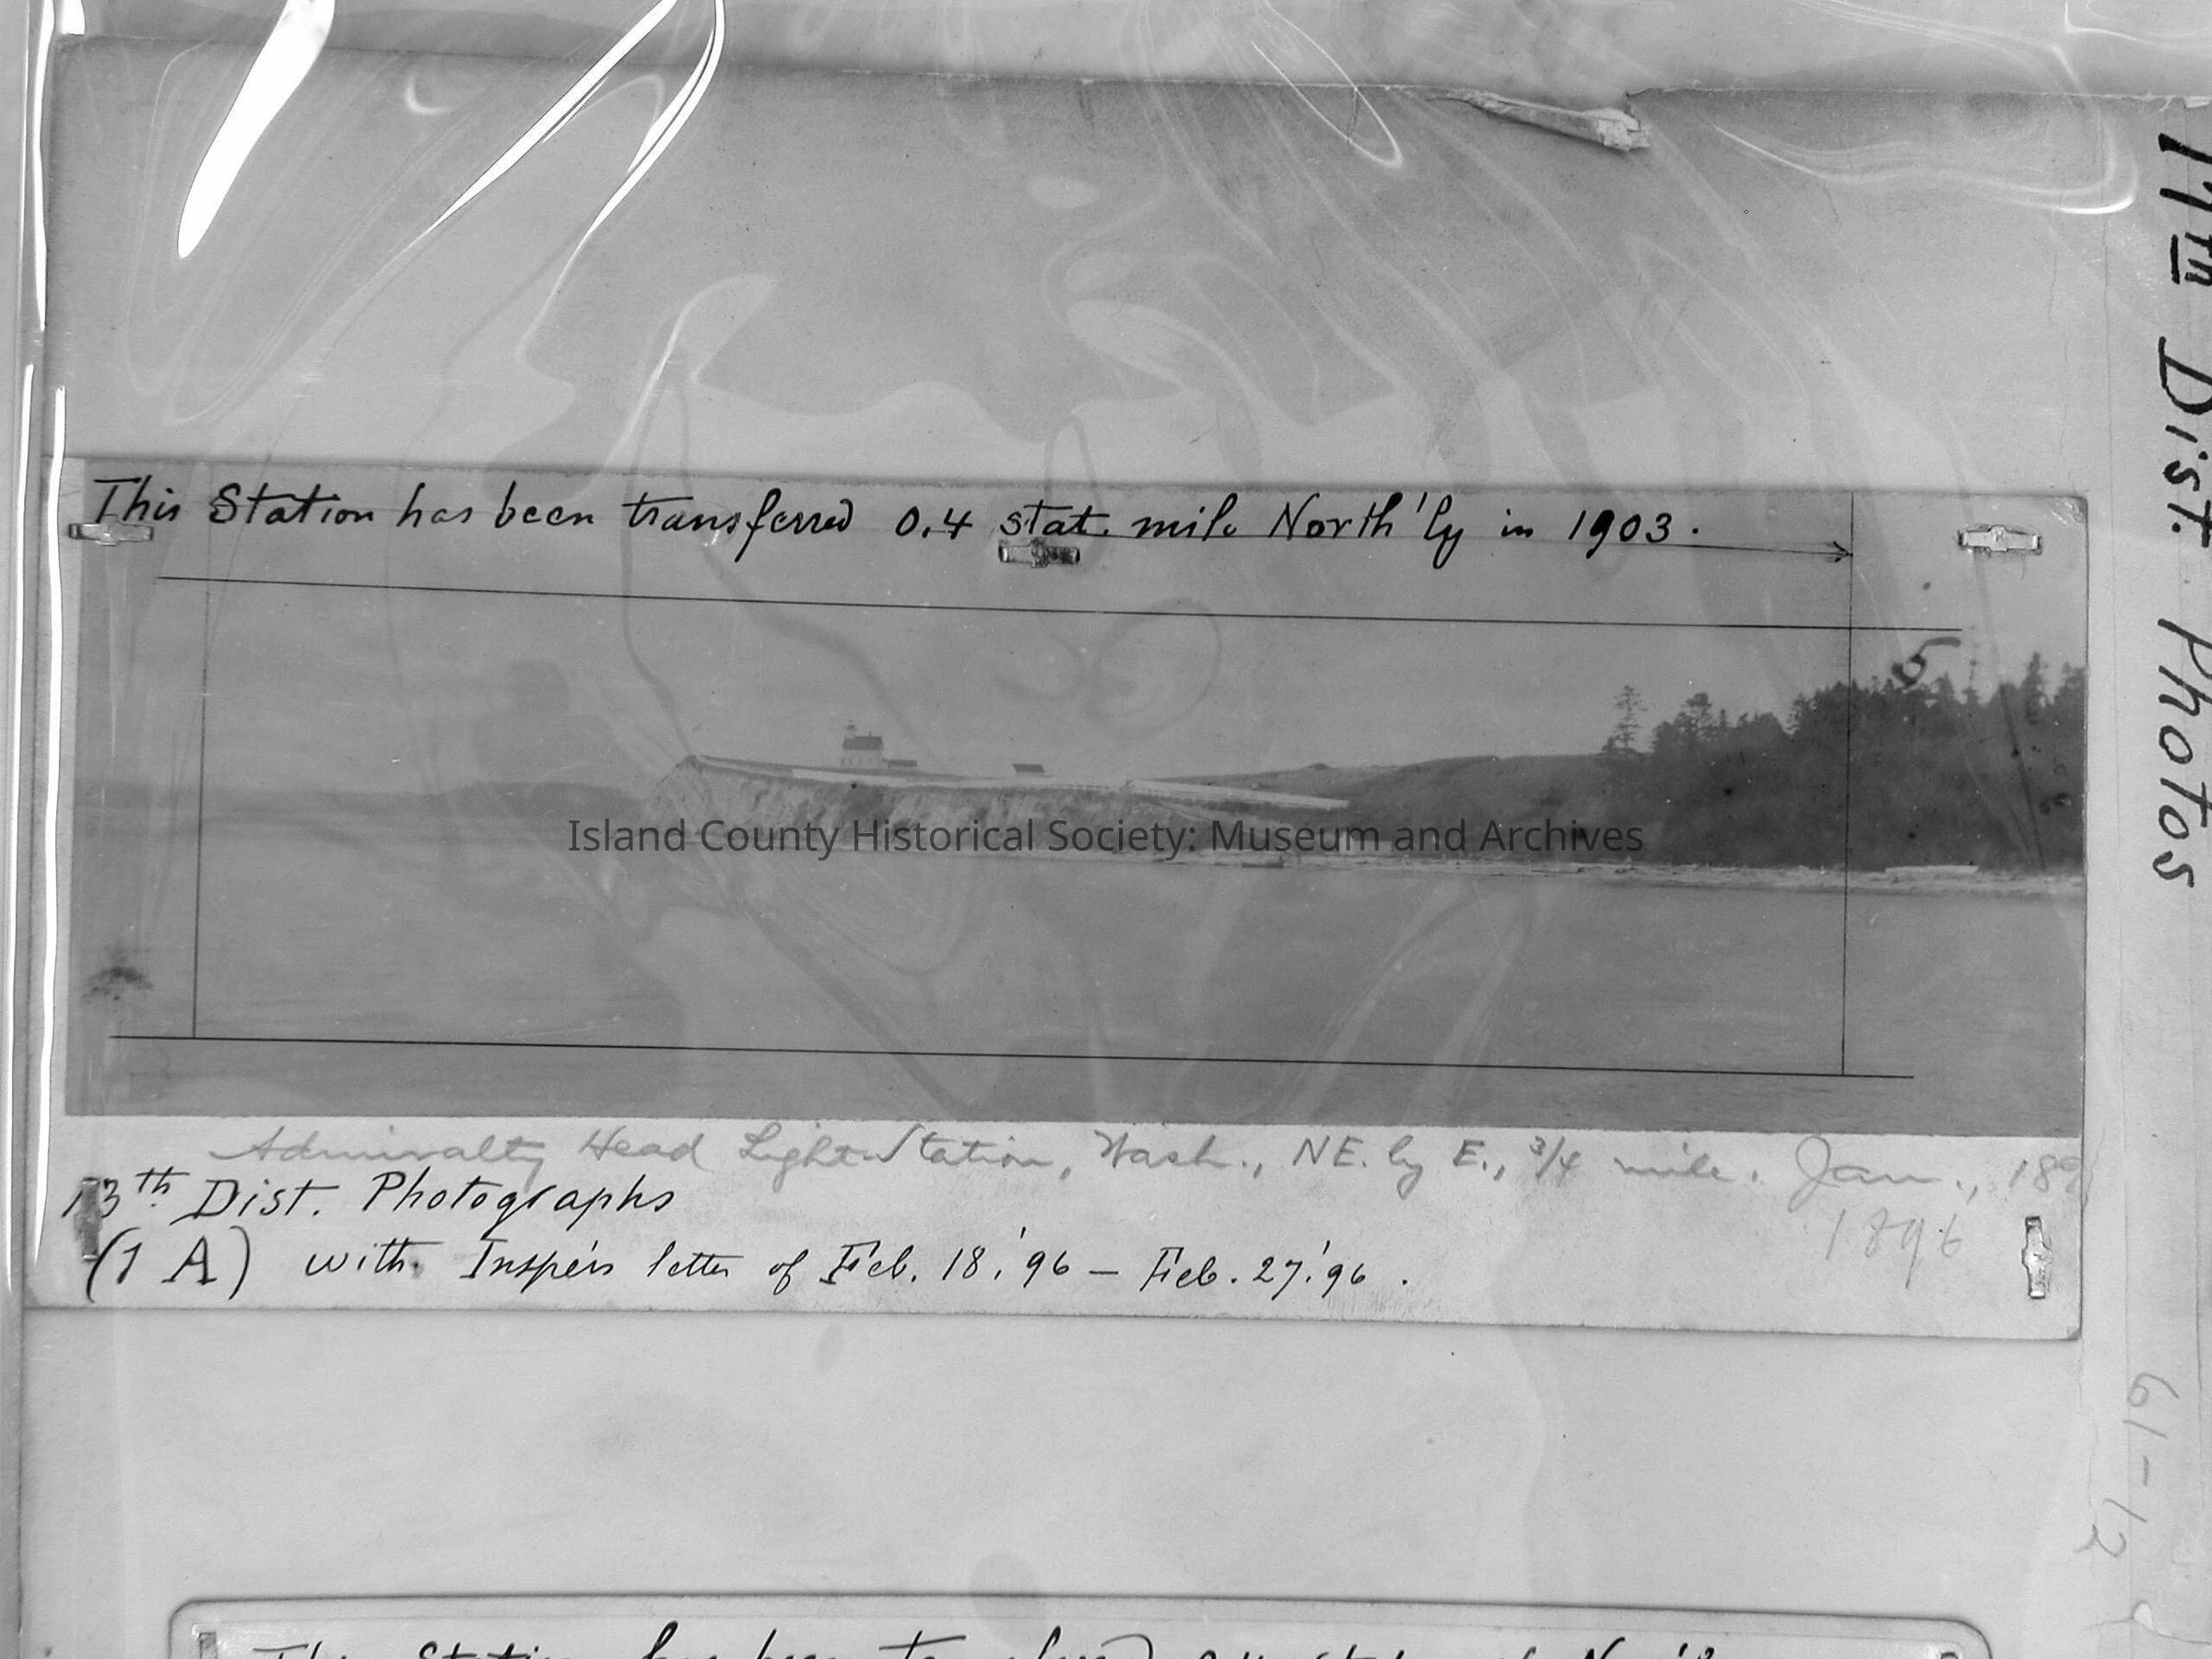 This Station has been transferred 0.4 stat. mile North'ly in 1903.
5
Island County Historical Society: Museum and Archives
Admiralty Head Light-Station, Wash., NE. by E., 3/4 mile. Jan., 189
1896
13th Dist. Photographs
(1 A) with Inspr's letter of Feb. 18, '96 — Feb. 27, '96.
17th Dist. Photos
61-12